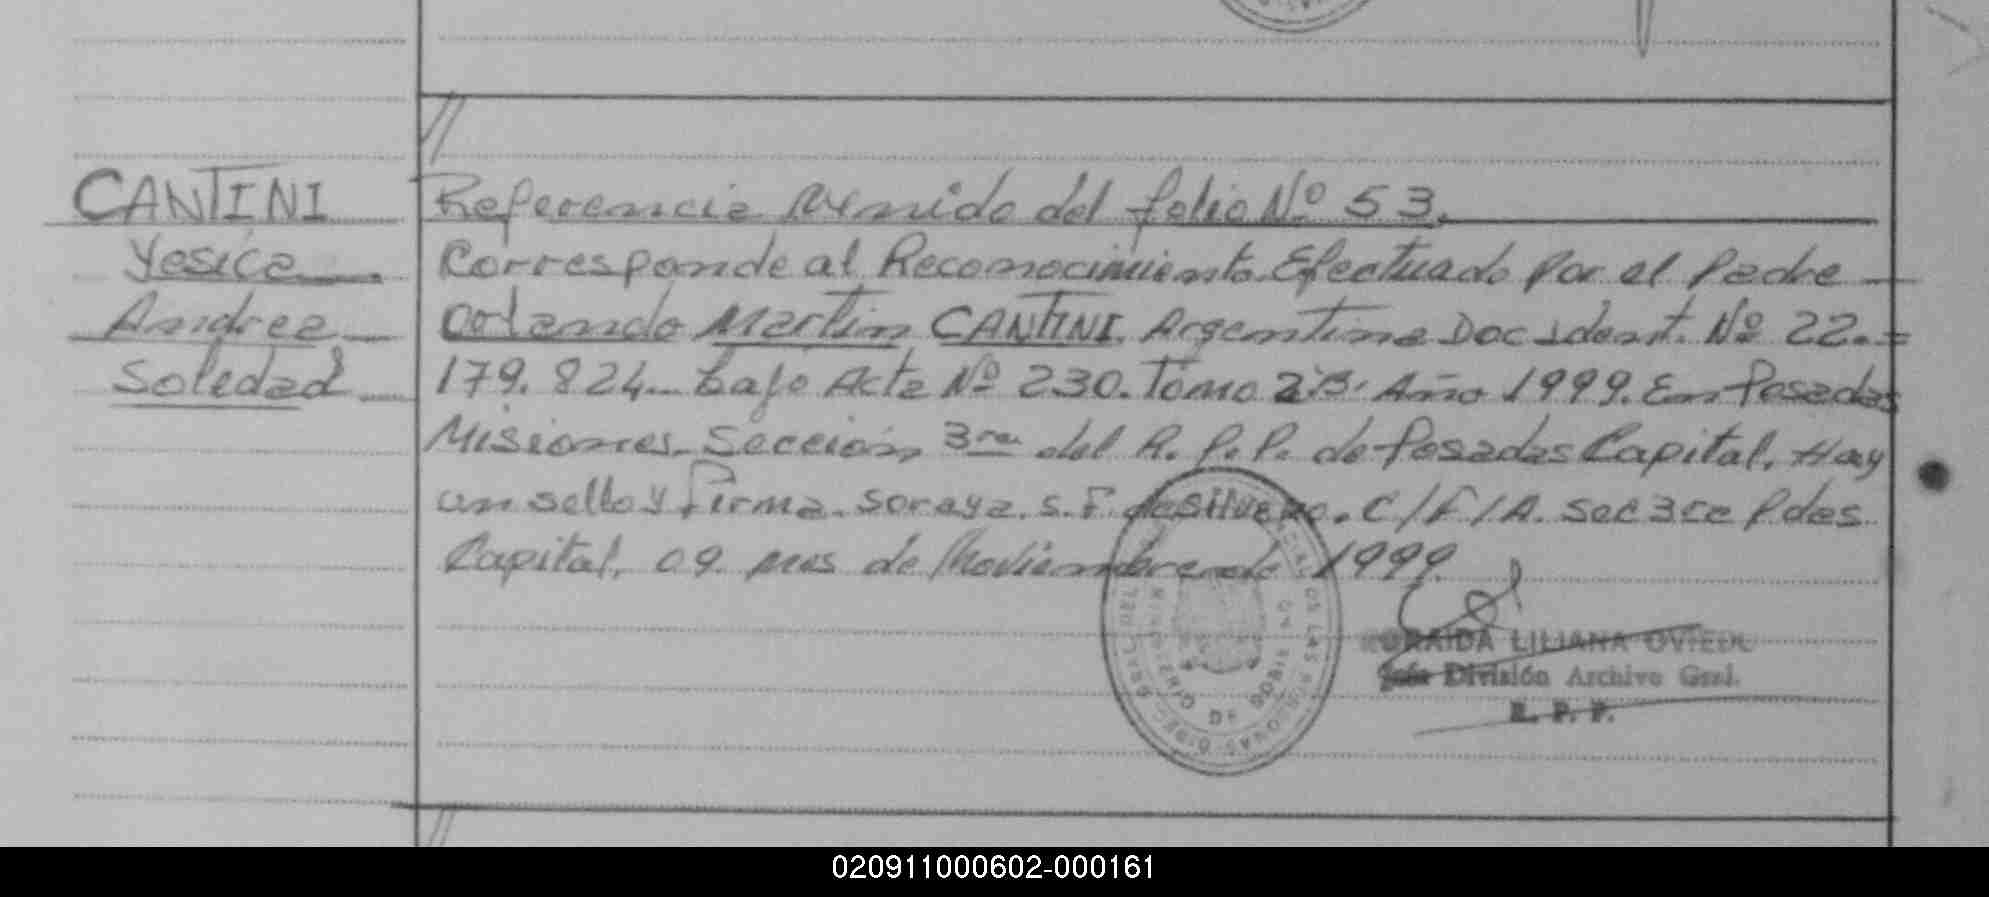 CANTINI
Yesica
Andrea
Soledad
Referencia Venido del folio Nº 53.
Corresponde al Reconocimiento Efectuado Por el Padre
Orlando Martin CANTINI. Argentino Doc Ident. Nº 22.=
179.824. bajo Acta Nº 230. Tomo Año 1999. En Posadas
Misiones. Sección 3ra del R.P.P. de Posadas Capital. Hay
un sello y firma. Soraya. S. F. de Silvero. C/F/A. Sec 3ra Pdas
Capital, 09. mes de Noviembre de 1999.
ZORAIDA LILIANA OVIEDO
Jefa División Archivo Gral.
R. P. P.
MINISTERIO DE GOBIERNO
020911000602-000161